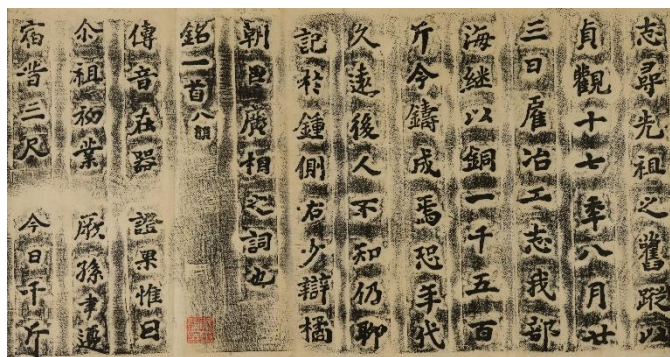 志尋先祖之舊蹤以
貞觀十七年八月廿
三日雇冶工志我部
海繼以銅一千五百
斤今鑄成焉恐年代
久遠後人不知仍聊
記於鍾側右少辯橘
朝臣廣相之詞也
銘一首八韻
傳音在器 證果惟因
尒祖初業 厥孫聿遵
宿昔二尺 今日千斤